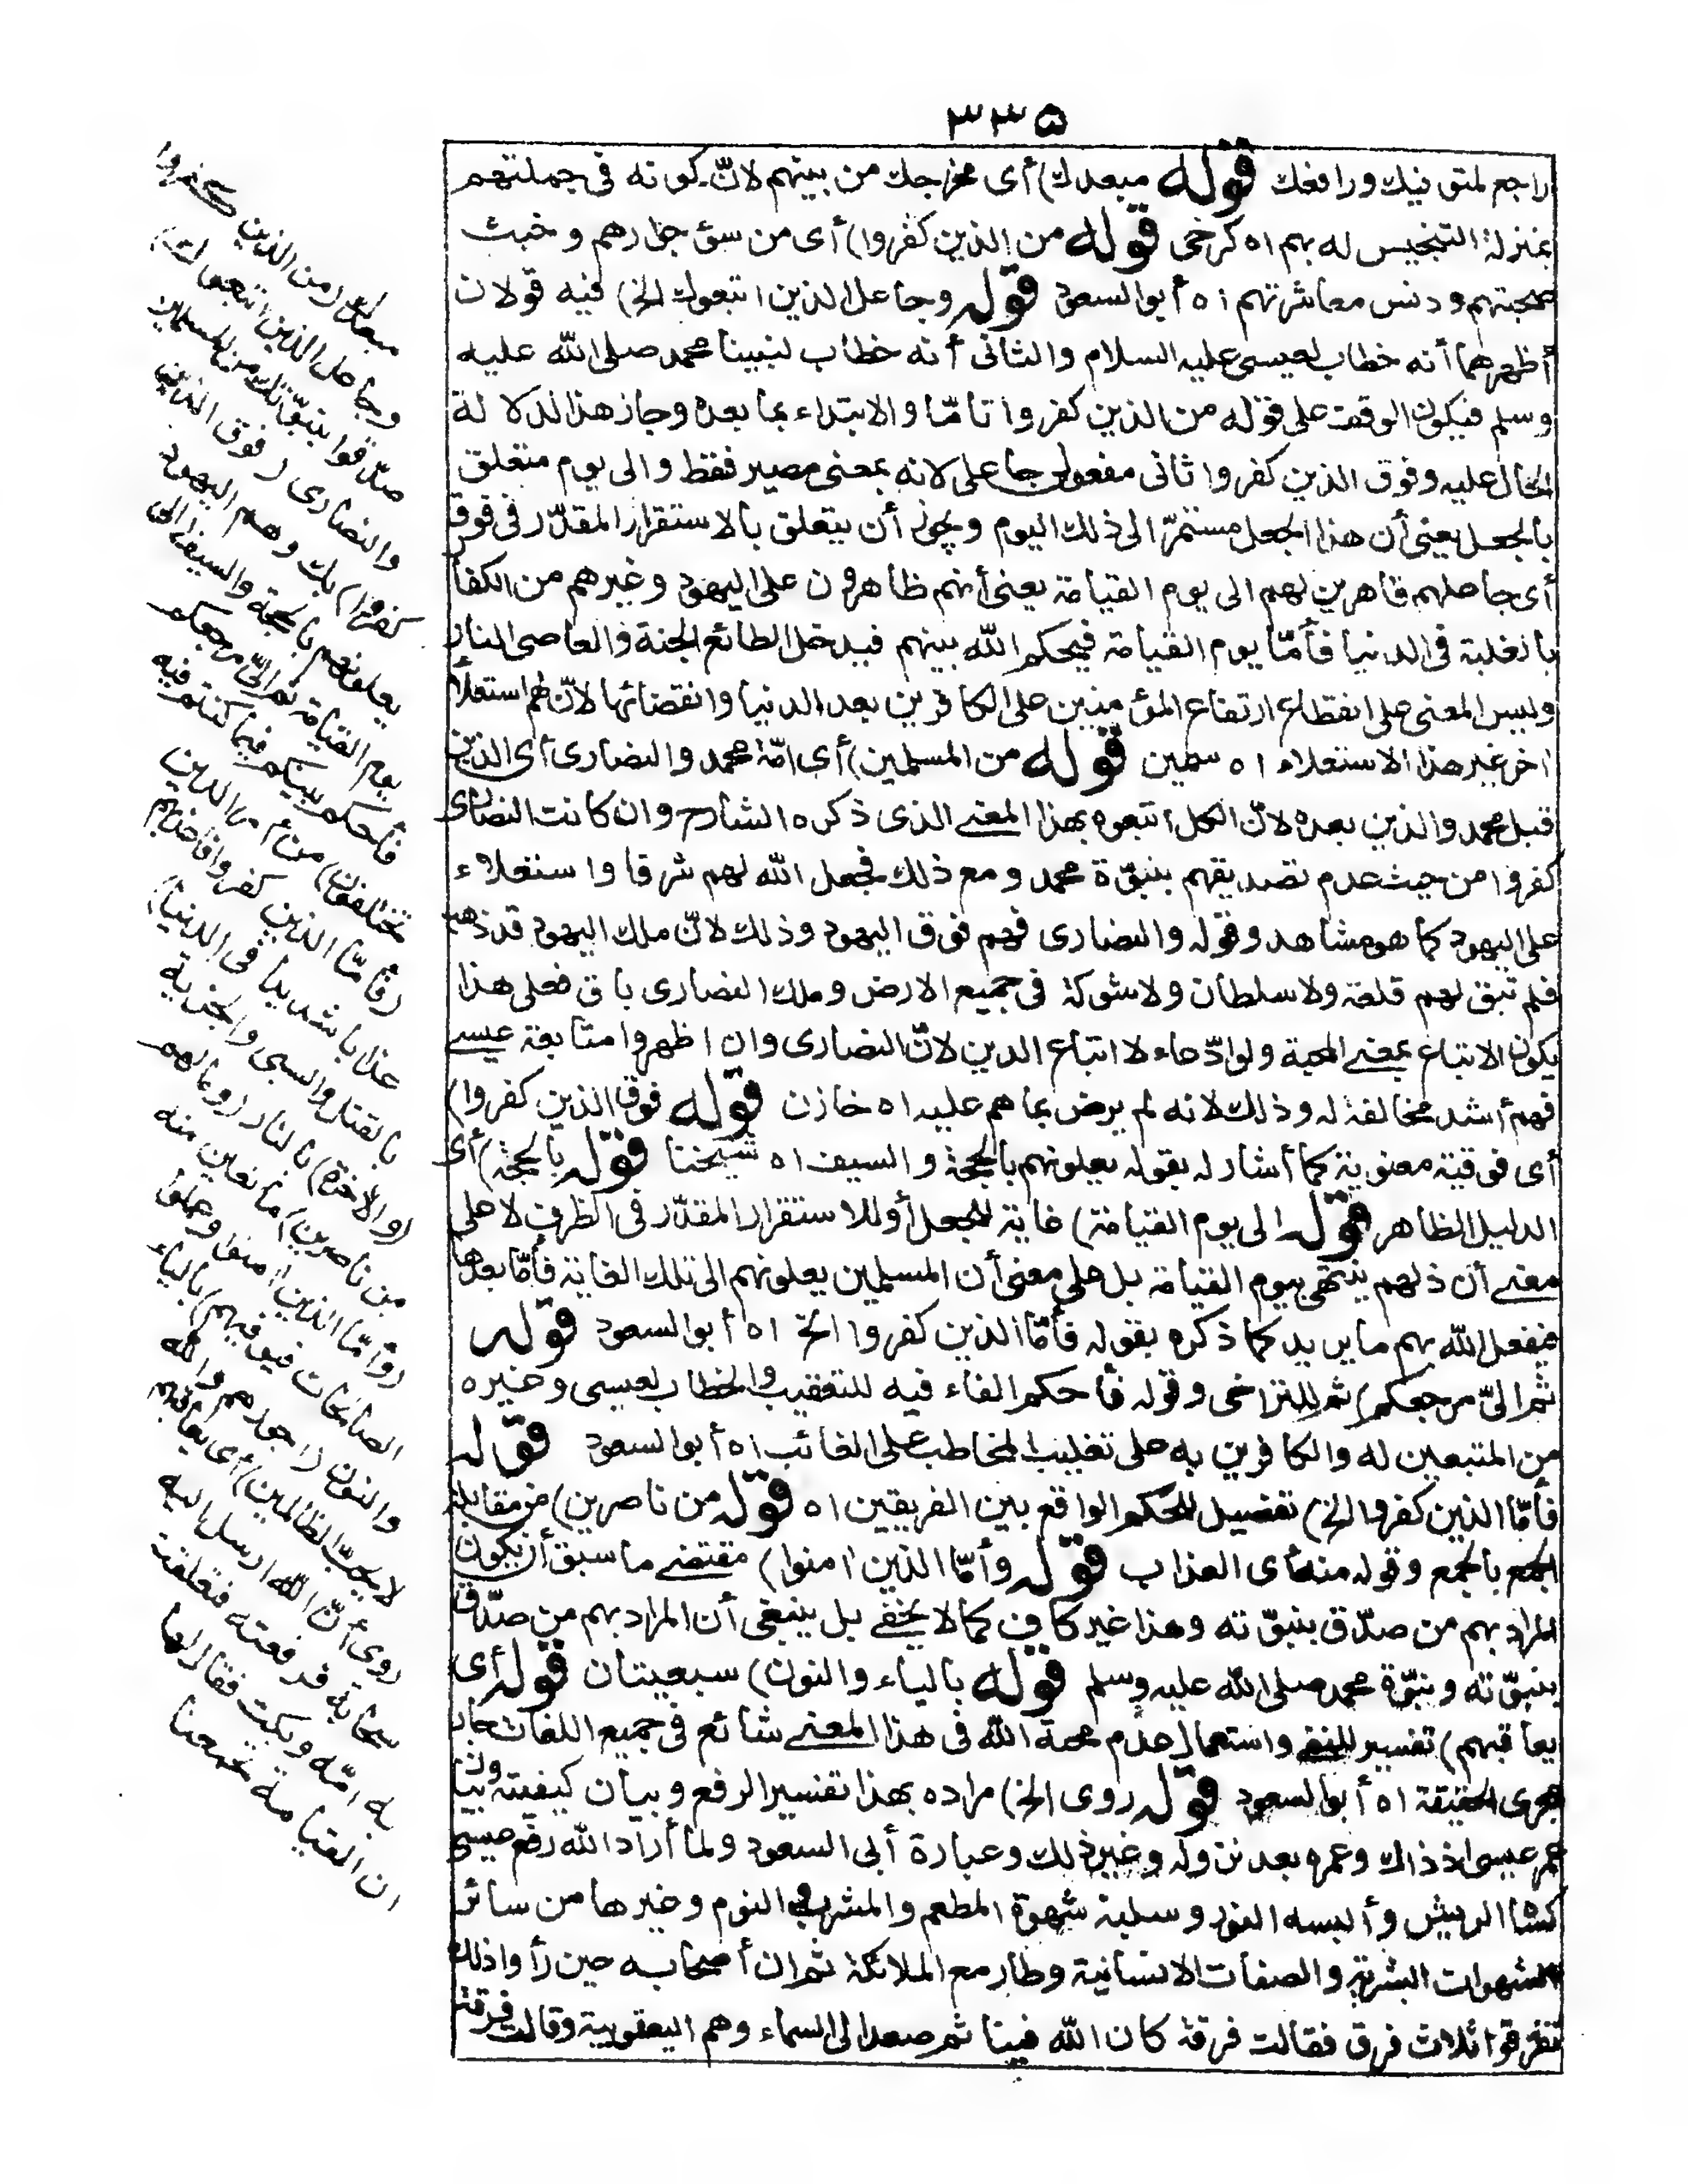 ٣٣٥
راجع لمتوفيك ورافعك قوله مبعدك) أى مخرجك من بينهم لانّ كونه فى جملتهم
بمنزلة التنجيس له بهم اه كرخى قوله من الذين كفروا) أى من سوء جوارهم وخبث
صحبتهم ودنس معاشرتهم اه أبو السعود قوله وجاعل الذين اتبعوك الخ) فيه قولان
أظهرهما أنه خطاب لعيسى عليه السلام والثانى أنه خطاب لنبينا محمد صلى الله عليه
وسلم فيكون الوقف على قوله من الذين كفروا تامّا والابتداء بما بعده وجاز هذا لدلالة
الحال عليه وفوق الذين كفروا ثانى مفعولى جاعل لانه بمعنى مصير فقط والى يوم متعلق
بالجعل يعنى أن هذا الجعل مستمرّ الى ذلك اليوم ويجوز أن يتعلق بالاستقرار المقدّر فى فوق
أى جاعلهم قاهرين لهم الى يوم القيامة يعنى أنهم ظاهرون على اليهود وغيرهم من الكفار
بالغلبة فى الدنيا فأمّا يوم القيامة فيحكم الله بينهم فيدخل الطائع الجنة والعاصى النار
وليس المعنى على انقطاع ارتفاع المؤمنين على الكافرين بعد الدنيا وانقضائها لانّ لهم استعلاء
اخر غير هذا الاستعلاء اه سمين قوله من المسلمين) أى امّة محمد والنصارى أى الذين
قبل محمد والذين بعده لانّ الكل اتبعوه بهذا المعنى الذى ذكره الشارح وان كانت النصارى
كفروا من حيث عدم تصديقهم بنبوّة محمد ومع ذلك فجعل الله لهم شرفا واستعلاء
على اليهود كما هو مشاهد وقوله والنصارى فهم فوق اليهود وذلك لانّ ملك اليهود قد ذهب
فلم تبق لهم قلعة ولا سلطان ولا شوكة فى جميع الارض وملك النصارى باق فعلى هذا
يكون الاتباع بمعنى المحبة ولو ادّعاء لا اتباع الدين لانّ النصارى وان اظهروا متابعة عيسى
فهم أشد مخالفة له وذلك لانه لم يرض بما هم عليه اه خازن قوله فوق الذين كفروا)
أى فوقية معنوية كما أشار له بقوله يعلونهم بالحجة والسيف اه شيخنا قوله بالحجة) أى
الدليل الظاهر قوله الى يوم القيامة) غاية للجعل أو للاستقرار المقدّر فى الظرف لا على
معنى أن ذلهم ينتهى بيوم القيامة بل على معنى أن المسلمين يعلونهم الى تلك الغاية فأمّا بعدها
فيفعل الله بهم ما يريد كما ذكره بقوله فأمّا الذين كفروا الخ اه أبو السعود قوله
ثم الىّ مرجعكم) ثم للتراخى وقوله فأحكم الفاء فيه للتعقيب والخطاب لعيسى وغيره
من المتبعين له والكافرين به على تغليب المخاطب على الغائب اه أبو السعود قوله
فأمّا الذين كفروا الخ) تفصيل للحكم الواقع بين الفريقين اه قوله من ناصرين) من مقابلة
الجمع بالجمع وقوله منه أى العذاب قوله وأمّا الذين امنوا) مقتضى ما سبق أن يكون
المراد بهم من صدّق بنبوّته وهذا غير كاف كما لا يخفى بل ينبغى أن المراد بهم من صدّق
بنبوّته ونبوّة محمد صلى الله عليه وسلم قوله بالياء والنون) سبعيتان قوله أى
يعاقبهم) تفسير للنفى واستعمال عدم محبة الله فى هذا المعنى شائع فى جميع اللغات جار
مجرى الحقيقة اه أبو السعود قوله روى الخ) مراده بهذا تفسير الرفع وبيان كيفيته وبيان
عمر عيسى اذ ذاك وعمره بعد نزوله وغير ذلك وعبارة أبى السعود ولما أراد الله رفع عيسى
كساه الريش وألبسه النور وسلبه شهوة المطعم والمشرب والنوم وغيرها من سائر
الشهوات البشرية والصفات الانسانية وطار مع الملائكة ثم ان أصحابه حين رأوا ذلك
تفرقوا ثلاث فرق فقالت فرقة كان الله فينا ثم صعد الى السماء وهم اليعقوبية وقالت فرقة
مبعدك (من الذين كفروا
وجاعل الذين اتبعوك)
صدّقوا بنبوّتك من المسلمين
والنصارى (فوق الذين
كفروا) بك وهم اليهود
يعلونهم بالحجة والسيف (الى
يوم القيامة ثم الىّ مرجعكم
فأحكم بينكم فيما كنتم فيه
تختلفون) من أمر الدين
(فأمّا الذين كفروا فأعذبهم
عذابا شديدا فى الدنيا)
بالقتل والسبى والجزية
(والاخرة) بالنار (وما لهم
من ناصرين) مانعين منه
(وأمّا الذين امنوا وعملوا
الصالحات فيوفيهم) بالياء
والنون (اجورهم والله
لا يحبّ الظالمين) أى يعاقبهم
روى أنّ الله ارسل اليه
سحابة فرفعته فتعلقت
به امّه وبكت فقال لها
ان القيامة تجمعنا